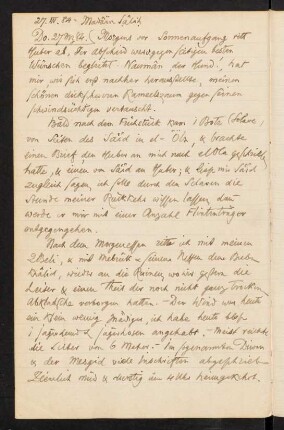 27. III. 84 - Madâin Sâlih
Do. 27 Mrz 84. Morgens vor Sonnenaufgang ritt
Huber ab. Zum Abschied wo von den besten
Wünschen begleitet
mir wie sich erst nachher herausstellte, meinen
schönen gegen seinen
schwindsüchtigen vertauscht.
Bald nach dem Frühstück kam 1 Bote (Sclave)
von Seiten des Sa'îd in el-'Öla, & brachte
einen Brief den Huber an mich nach el Öla geschickt
hatte, & einen von Sa'îd an Huber, & liess mir Sa'îd
zugleich sagen, ich solle durch den Sclaven die
Stunde meiner Rückkehr wissen lassen, dann
werde er mir mit einer Anzahl Flintenträger
entgegengehen.
Nach dem Morgenessen ritt ich mit meinen
2 Beli, & mit & seinem Neffen dem Buben
Khâlid, wieder an die Ruinen, wo wir gestern die
Leiter & einen Theil der noch nicht ganz trocknen
Abklatsche verborgen hatten. - Der Wind war heute
ein klein wenig gnädiger, ich habe heute bloss
angehabt. Meist reichte
die Leiter von 6 Meter. - Im sogenannten Diwan
& der Mesgid viele Inschriften abgeschrieben
Ziemlich müd & durstig um 4 Uhr heimgekehrt.